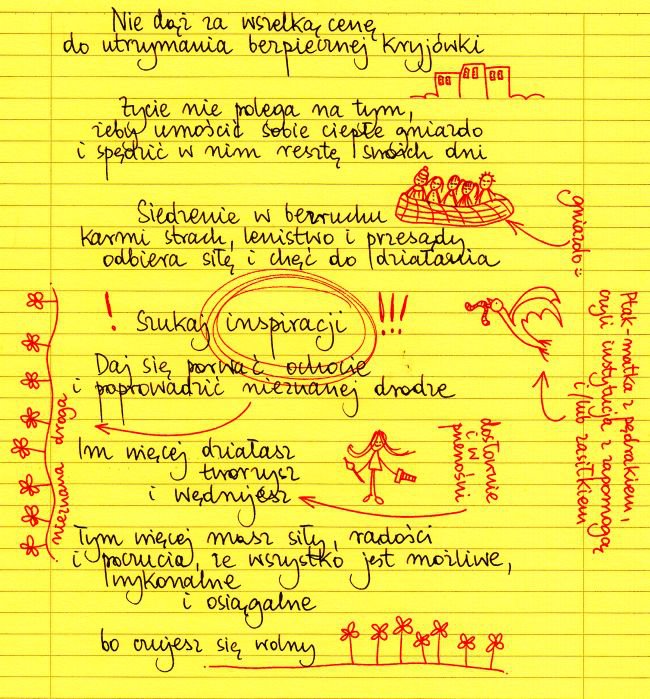 Nie dąż za wszelką cenę
do utrzymania bezpiecznej kryjówki
Życie nie polega na tym,
żeby umościć sobie ciepłe gniazdo
i spędzić w nim resztę swoich dni
gniazdo =
Siedzenie w bezruchu
karmi strach, lenistwo i przesądy
odbiera siłę i chęć do działania
! Szukaj inspiracji !!!
Daj się porwać ochocie
i poprowadzić nieznanej drodze
Ptak-matka z pędrakiem,
czyli instytucja z zapomogą
i/lub zasiłkiem
nieznana droga
Im więcej działasz
tworzysz
i wędrujesz
dosłownie
i w
przenośni
Tym więcej masz siły, radości
i poczucia, że wszystko jest możliwe,
wykonalne
i osiągalne
bo czujesz się wolny